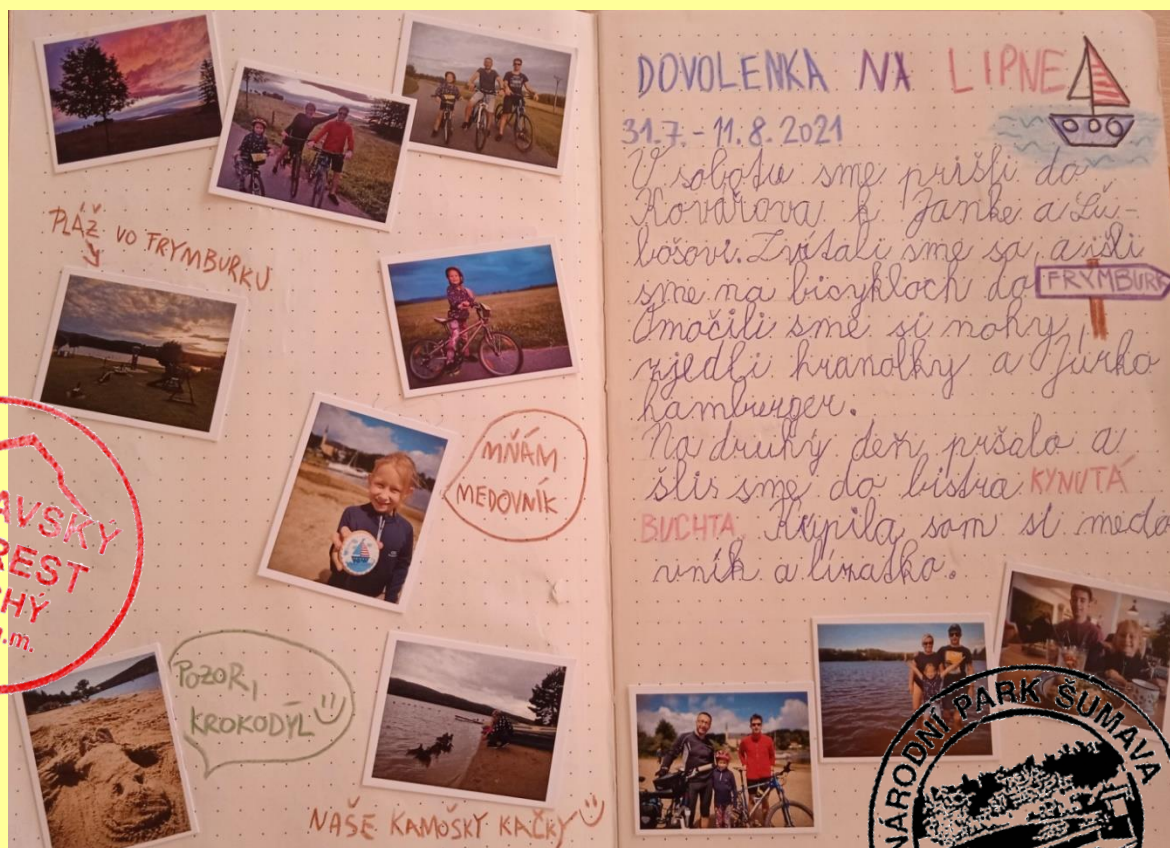 PLÁŽ VO FRYMBURKU
MŇÁM
MEDOVNÍK
AVSKÝ
REST
CHÝ
POZOR,
KROKODÝL
NAŠE KAMOŠKY KAČKY
DOVOLENKA NA LIPNE
31.7. - 11.8.2021
V sobotu sme prišli do
Kovářova k Janke a Ľu-
bošovi. Zvítali sme sa a išli
sme na bicykloch do FRYMBURK
Omočili sme si nohy,
zjedli hranolky a Jurko
hamburger.
Na druhý deň pršalo a
šlis sme do bistra KYNUTÁ
BUCHTA. Kúpila som si medo
vník a lízatko.
NÁRODNÍ PARK ŠUMAVA